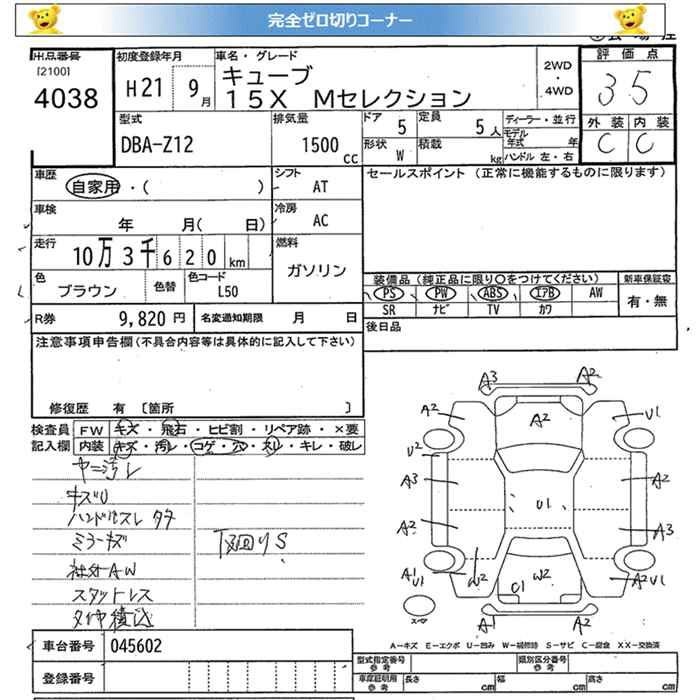 完全ゼロ切りコーナー
出品番号
[2100]
4038
初度登録年月
H21 9月
車名・グレード
キューブ
15X Mセレクション
2WD
・
4WD
評価点
3.5
外装 内装
C C
型式
DBA-Z12
排気量
1500
cc
ドア
5
定員
5人
形状
W
積載
kg
ディーラー・並行
モデル
年式 年
ハンドル 左・右
車歴
自家用・( )
シフト
AT
セールスポイント(正常に機能するものに限ります)
車検
年 月( 日)
冷房
AC
走行
10万3千620km
燃料
ガソリン
色
ブラウン
色替
色コード
L50
装備品(純正品に限り○をつけてください)
PS PW ABS エアB AW
SR ナビ TV カワ
新車保証書
有・無
R券
9,820円
名変通知期限 月 日
後日品
注意事項申告欄(不具合内容等は具体的に記入して下さい)
修復歴 有 〔箇所 〕
検査員
記入欄
FW キズ・飛石・ヒビ割・リペア跡・×要
内装 キズ・汚レ・コゲ・穴・スレ・キレ・破レ
ヤニ汚レ
キズU
ハンドルスレ タタ
ミラーキズ
社外AW
スタットレス
タイヤ積込
下回りS
A3 A2
A2 A2 U1
U2
A3 A2
U1
A2 A3
A1 U1 W2 C1 W2 A2 U1
A1 A2
スペア
A－キズ E－エクボ U－凹み W－補修跡 S－サビ C－腐食 XX－交換済
車台番号
045602
登録番号
型式指定番号
参考
類別区分番号
参考
車庫証明用
参考
長さ cm
幅 cm
高さ cm